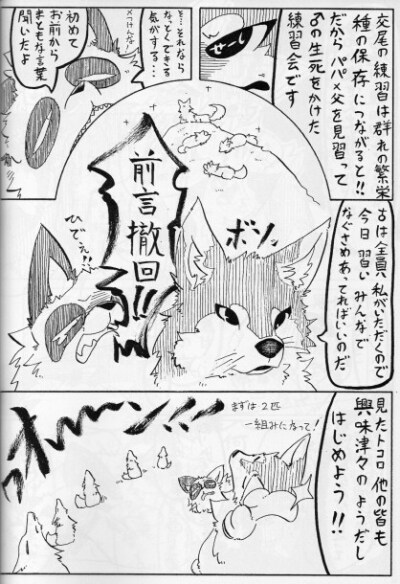 交尾の練習は群れの繁栄
種の保存につながると!!
だからパパ×父を見習って
♂の生死をかけた
練習会です
せーし
と…それなら
なっとくできる
気がする…
×っけんな!
初めて
お前から
まともな言葉
聞いたよ
♀は全員、私がいただくので
今日習い みんなで
なぐさめあってればいいのだ
ボソッ
前言撤回!!
ひでぇ!!
見たトコロ 他の皆も
興味津々のようだし
はじめよう!!
まずは2匹
一組みになって!
オーン!!